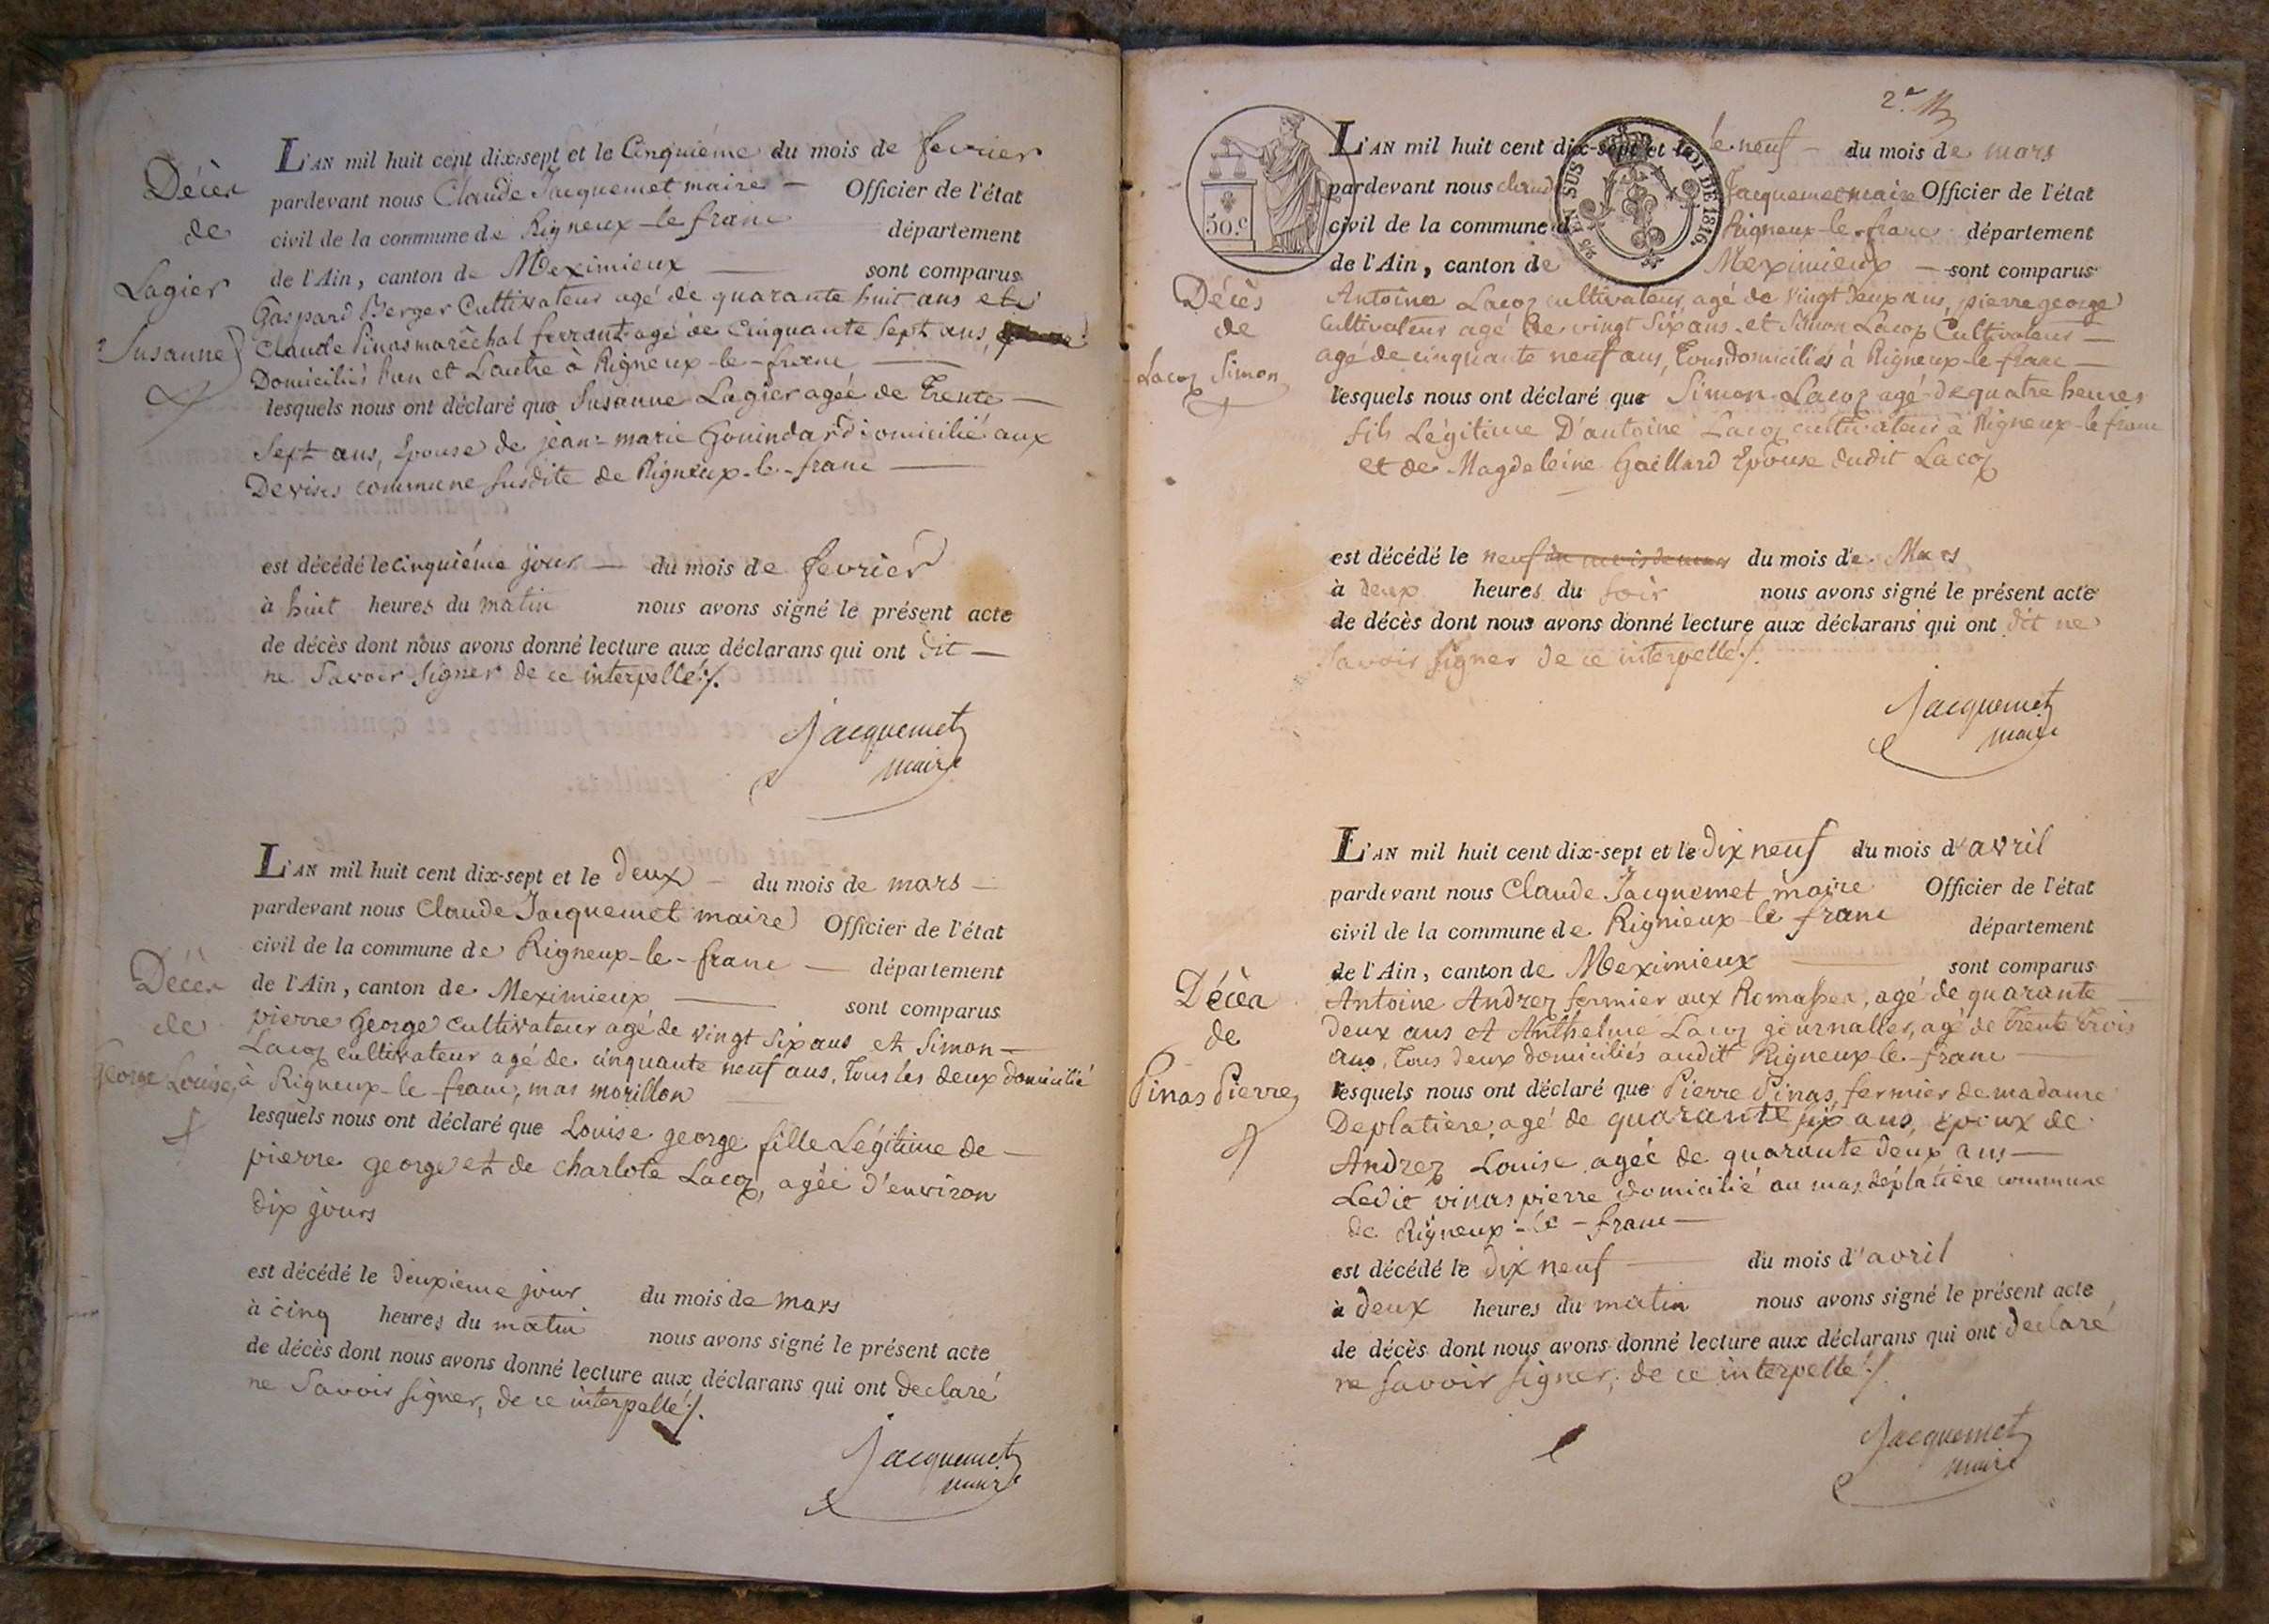 Décès
de
Lagier
Susanne
L'AN mil huit cent dix-sept et le Cinquiéme du mois de fevrier
pardevant nous Claude Jacquemet maire Officier de l'état
civil de la commune de Rigneux-le-franc département
de l'Ain, canton de Meximieux sont comparus
Gaspard Berger Cultivateur agé de quarante huit ans et
Claude Pinas maréchal ferrant agé de Cinquante Sept ans,
Domiciliés l'un et L'autre à Rigneux-le-franc
lesquels nous ont déclaré que Susanne Lagier agée de Trente
Sept ans, Epouse de jean-marie Gouindard Domicilié aux
Devises commune susdite de Rigneux-le-franc
est décédé le cinquiéme jour du mois de fevrier
à huit heures du matin nous avons signé le présent acte
de décès dont nous avons donné lecture aux déclarans qui ont dit
ne Savoir signer de ce interpellé./.
Jacquemet
maire
Décès
de
George Louise,
L'AN mil huit cent dix-sept et le deux du mois de mars
pardevant nous Claude Jacquemet maire Officier de l'état
civil de la commune de Rigneux-le-franc département
de l'Ain, canton de Meximieux sont comparus
pierre George cultivateur agé de vingt six ans et Simon
Lacoz cultivateur agé de cinquante neuf ans, Tous les deux domicilié
à Rigneux-le-franc, mas morillon
lesquels nous ont déclaré que Louise george fille Légitime de
pierre george et de charlote Lacoz, agée d'environ
dix jours
est décédé le deuxieme jour du mois de mars
à cinq heures du matin nous avons signé le présent acte
de décès dont nous avons donné lecture aux déclarans qui ont declaré
ne Savoir signer, de ce interpellé./.
Jacquemet
maire
2e
50.c
EN SUS
LOI DE 1816.
Décès
de
Lacoz Simon
L'AN mil huit cent dix-sept et le le neuf du mois de mars
pardevant nous claude Jacquemet maire Officier de l'état
civil de la commune d Rigneux-le-franc département
de l'Ain, canton de Meximieux sont comparus
Antoine Lacoz cultivateur, agé de vingt deux ans, pierre george
Cultivateur agé de vingt six ans et Simon Lacoz Cultivateur
agé de cinquante neuf ans, Tous Domiciliés à Rigneux-le-franc
lesquels nous ont déclaré que Simon Lacoz agé de quatre heures
fils Légitime D'antoine Lacoz cultivateur à Rigneux-le franc
et de Magdeleine Gaillard Epouse dudit Lacoz
est décédé le neuf du mois de mars du mois de Mars
à deux heures du soir nous avons signé le présent acte
de décès dont nous avons donné lecture aux déclarans qui ont dit ne
Savoir signer de ce interpellé./.
Jacquemet
maire
Décès
de
Pinas Pierre,
L'AN mil huit cent dix-sept et le dix neuf du mois d'avril
pardevant nous Claude Jacquemet maire Officier de l'état
civil de la commune de Rignieux-le franc département
de l'Ain, canton de Meximieux sont comparus
Antoine Andrez fermier aux Romasses, agé de quarante
deux ans et Anthelme Lacoz journallier, agé de Trente Trois
ans, Tous deux domiciliés audit Rigneux-le-franc
lesquels nous ont déclaré que Pierre Pinas, fermier de madame
Deplatiere, agé de quarante six ans, epoux de
Andrez Louise agée de quarante deux ans
Ledit pinas pierre domicilié au mas déplatière commune
de Rigneux-le-franc
est décédé le dix neuf du mois d'avril
à deux heures du matin nous avons signé le présent acte
de décès dont nous avons donné lecture aux déclarans qui ont declaré
ne savoir signer, de ce interpellé./.
Jacquemet
maire